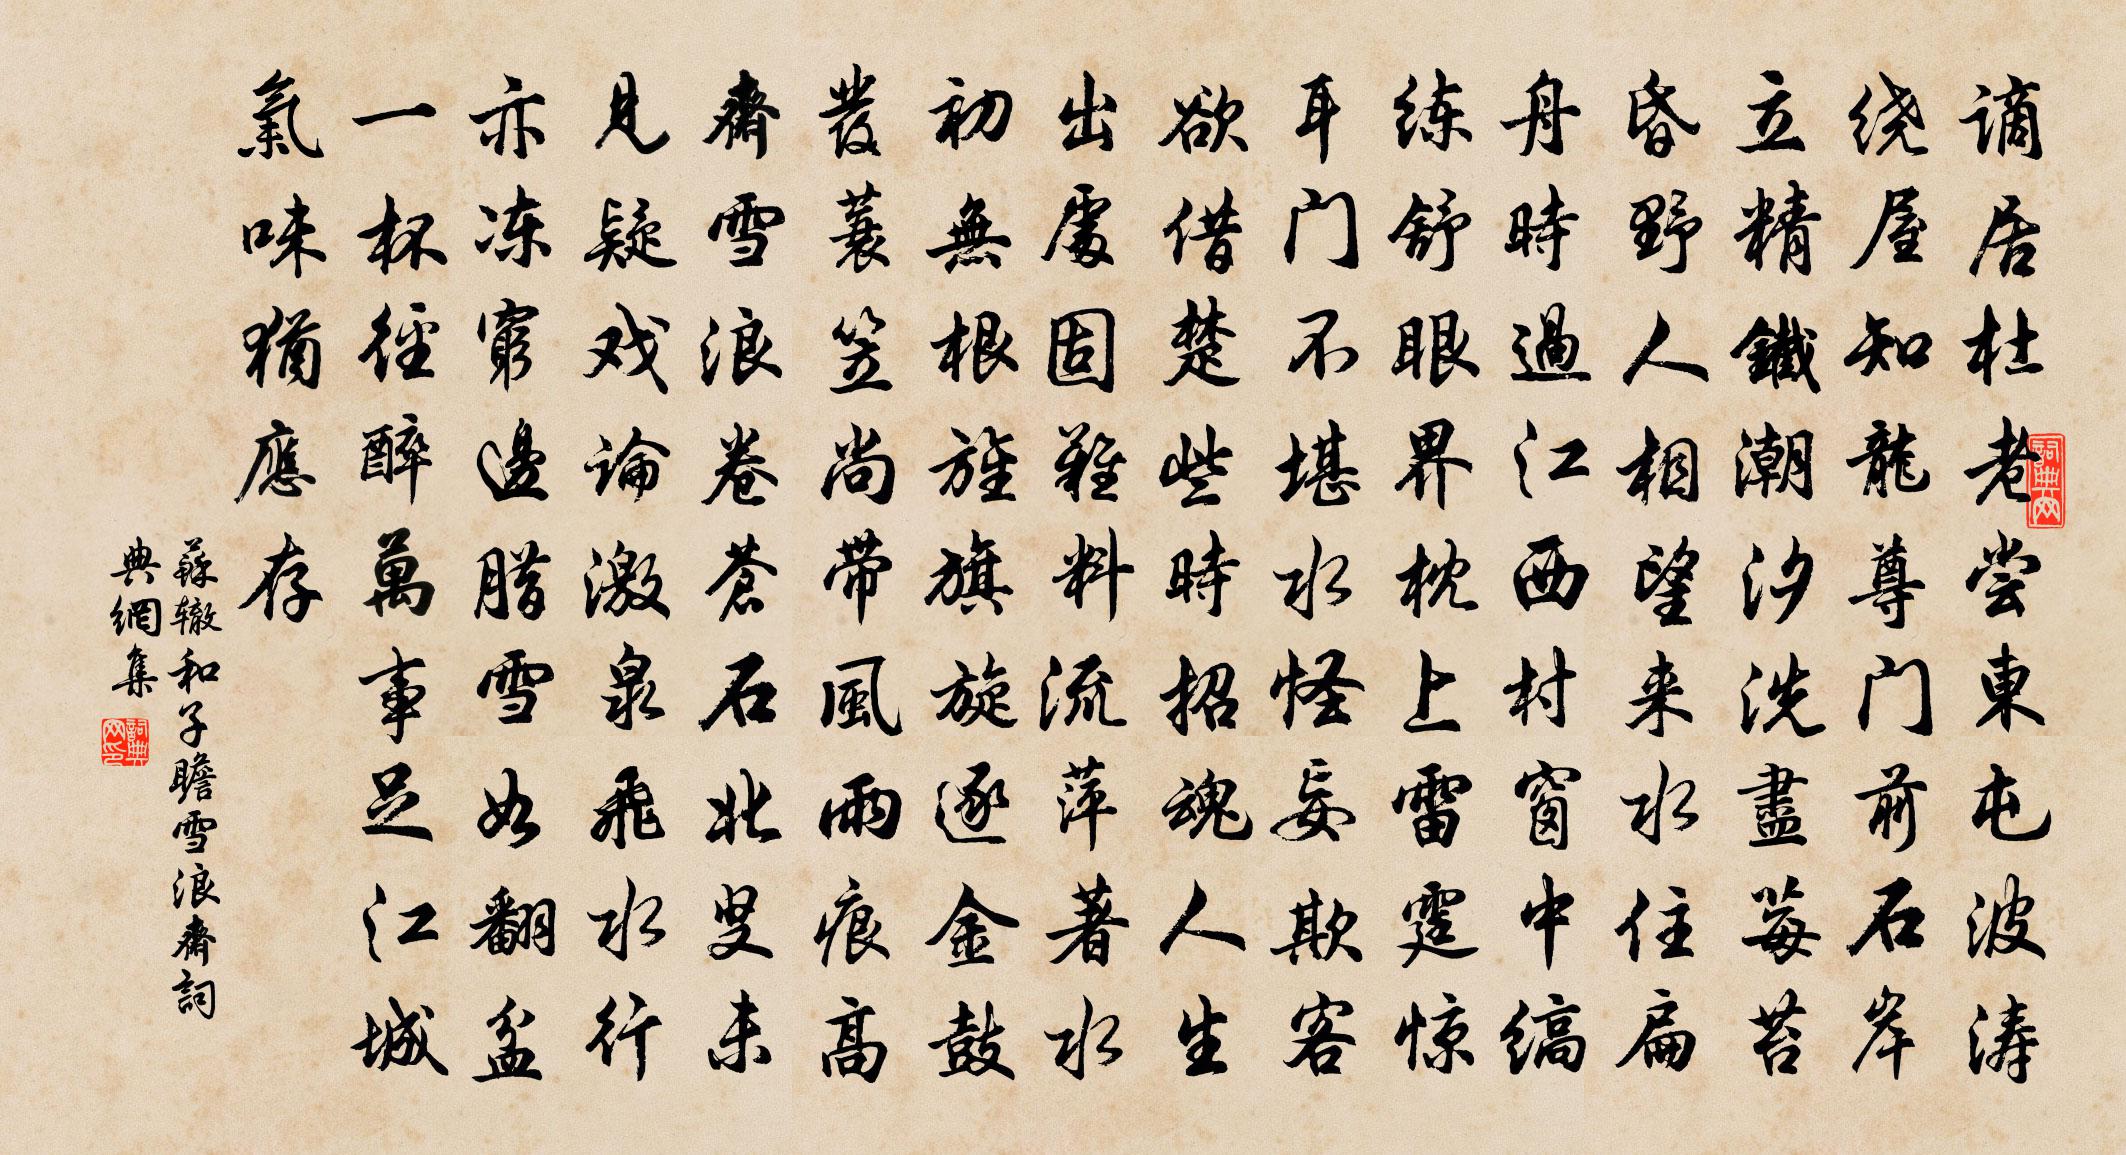 谪居杜老尝東屯波涛
绕屋知龍尊门前石岸
立精鐵潮汐洗盡莓苔
昏野人相望来水住扁
舟時過江西村窗中缟
练舒眼界枕上雷霆惊
耳门不堪水怪妄欺客
欲借楚些時招魂人生
出處固難料流萍著水
初無根旌旗旋逐金鼓
發蓑笠尚带風雨痕高
齋雪浪卷蒼石北叟未
見疑戏论激泉飛水行
亦冻窮邊腊雪如翻盆
一杯徑醉萬事足江城
氣味猶應存
蘇辙和子瞻雪浪齋詞
典網集
詞典网
詞典网印